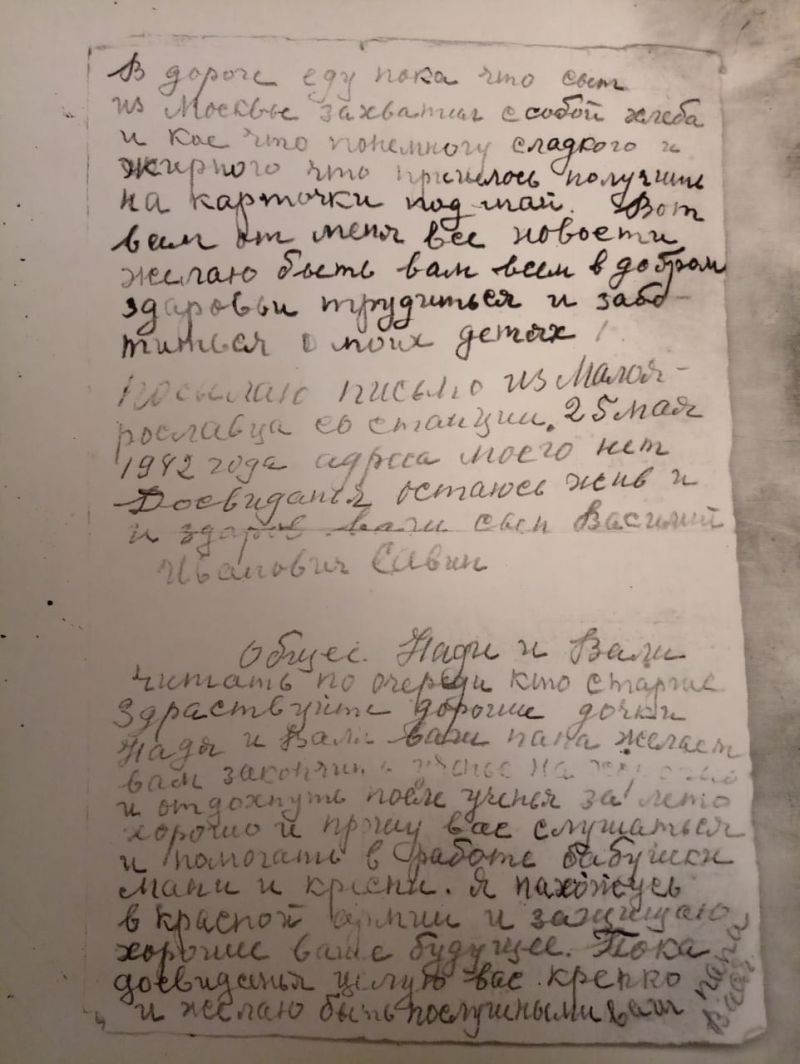 В дороге еду пока что сыт
из Москвы захватил с собой хлеба
и кое что понемногу сладкого и
жирного что пришлось получить
на карточки под май. Вот
вам от меня все новости
желаю быть вам всем в добром
здоровьи трудиться и забо-
титься о моих детях
Посылаю письмо из Малоя-
рославца со станции. 25 мая
1942 года адреса моего нет
Досвиданья остаюсь жив и
и здоров ваш сын Василий
Иванович Савин
Общее. Нади и Вали
читать по очереди кто старше
Здраствуйте дорогие дочки
Надя и Валя ваш папа желает
вам закончить ученье на
и отдохнуть после ученья за лето
хорошо и прошу вас слушаться
и помогать в работе бабушки
Мани и крёсни. Я нахожусь
в красной армии и защищаю
хорошее ваше будущее. Пока
досвиданья целую вас крепко
и желаю быть послушными ваш
папа